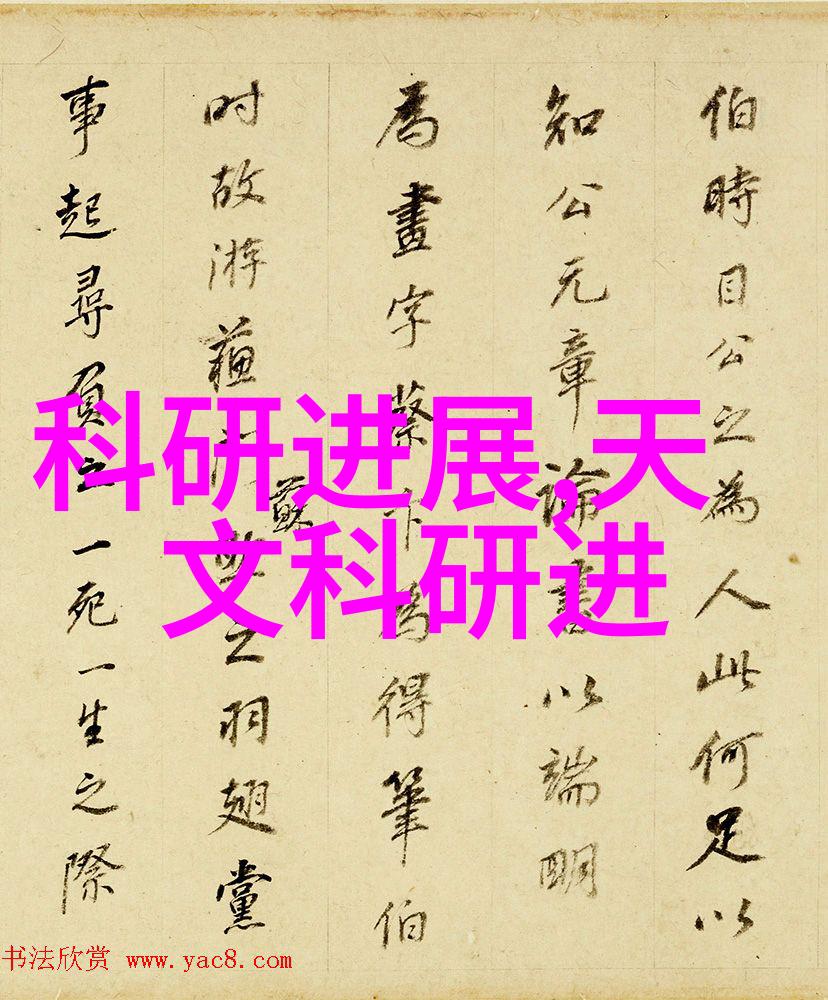 伯時目公之為人此何足以
知公元章論書以端明
為畫字蔡卞為得筆伯
时故游蘓 之羽翅黨
蘇
事起尋負之一死一生之際
科研进展,天
文科研进
书法欣赏 www.yac8.com